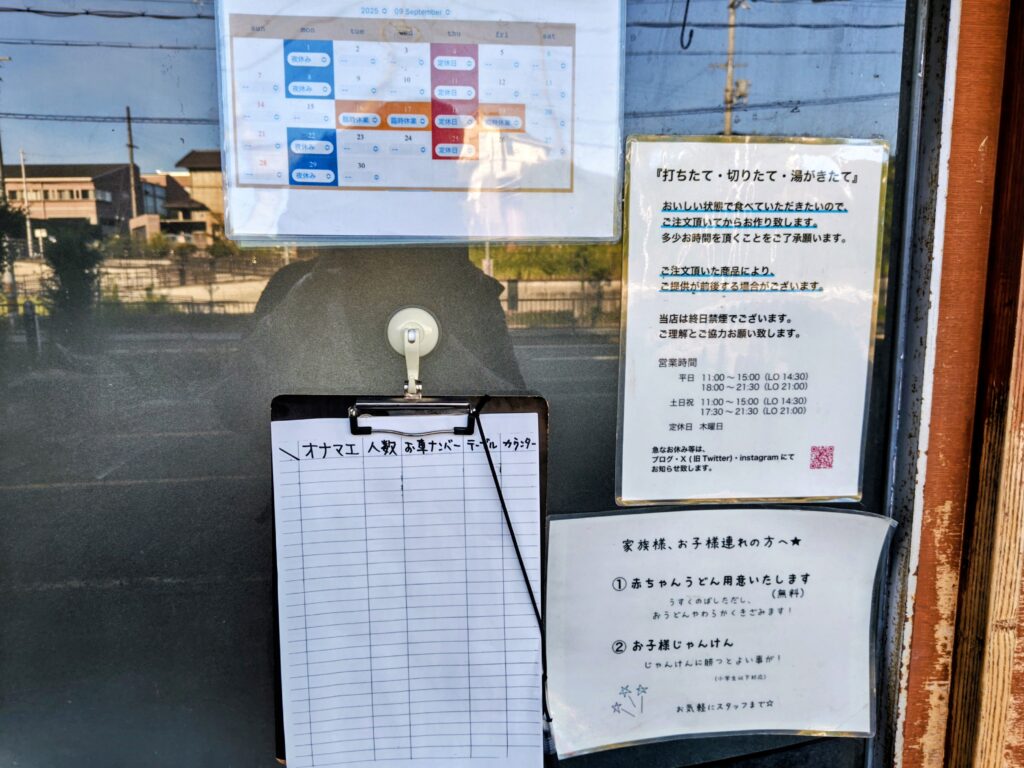 2025 09 September
sun mon tue wed thu fri sat
1 2 3 4 5 6
夜休み -- -- 定休日 -- --
7 8 9 10 11 12 13
-- 夜休み -- -- 定休日 -- --
14 15 16 17 18 19 20
-- -- 臨時休業 臨時休業 定休日 臨時休業 --
21 22 23 24 25 26 27
-- 夜休み -- -- 定休日 -- --
28 29 30
-- 夜休み --
『打ちたて・切りたて・湯がきたて』
おいしい状態で食べていただきたいので、
ご注文頂いてからお作り致します。
多少お時間を頂くことをご了承願います。
ご注文頂いた商品により、
ご提供が前後する場合がございます。
当店は終日禁煙でございます。
ご理解とご協力お願い致します。
営業時間
平日 11:00〜15:00(LO 14:30)
18:00〜21:30(LO 21:00)
土日祝 11:00〜15:00(LO 14:30)
17:30〜21:30(LO 21:00)
定休日 木曜日
急なお休み等は、
ブログ・X(旧Twitter)・instagramにて
お知らせ致します。
オナマエ 人数 お車ナンバー テーブル カウンター
家族様、お子様連れの方へ★
① 赤ちゃんうどん用意いたします
(無料)
うすくのばしただし、
おうどんやわらかくきざみます!
② お子様じゃんけん
じゃんけんに勝つとよい事が!
(小学生以下対応)
お気軽にスタッフまで☆